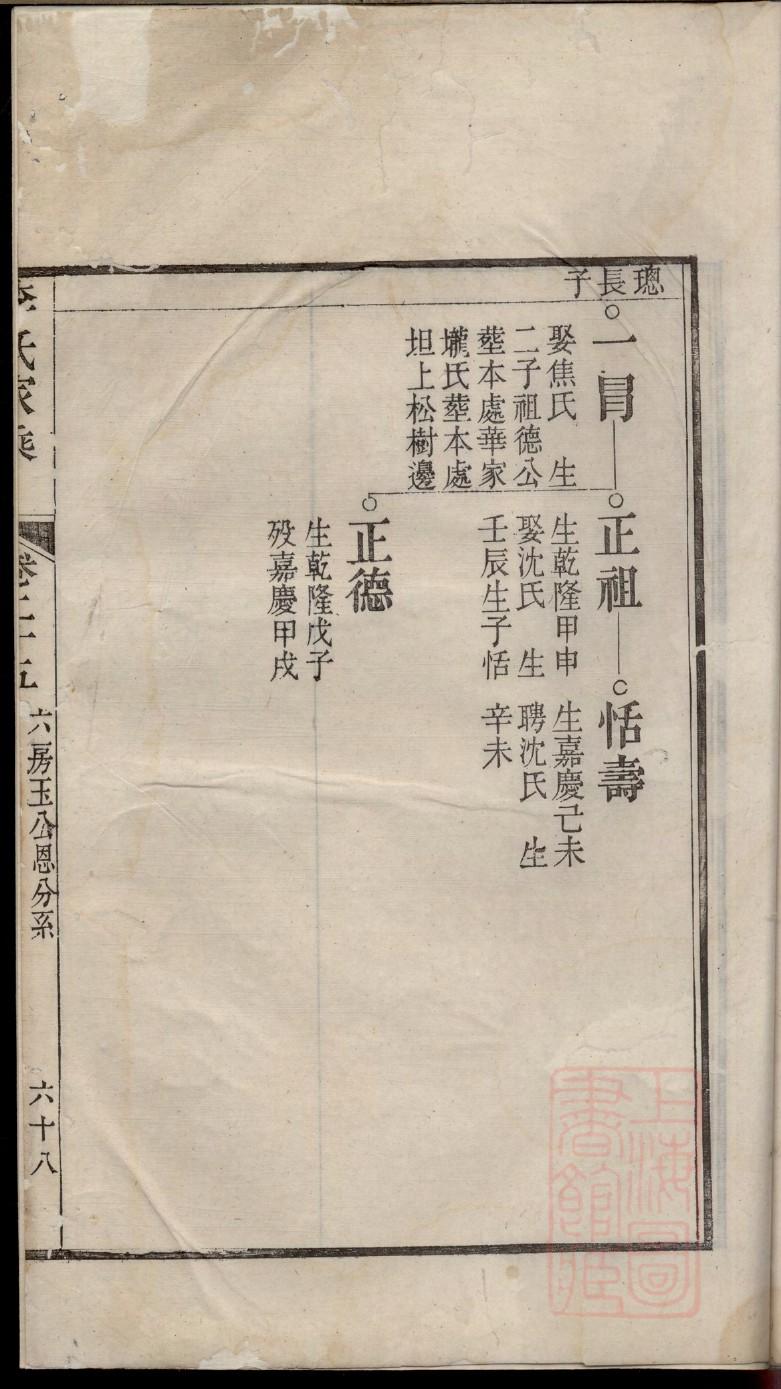 璁長子
一冐
娶焦氏 生
二子祖德公
塟本處華家
壠氏塟本處
坦上松樹邊
正祖
生乾隆甲申
娶沈氏 生
壬辰生子恬
恬壽
生嘉慶己未
聘沈氏 生
辛未
正德
生乾隆戊子
殁嘉慶甲戌
氏家乘
卷二十五
六房玉公恩分系
六十八
上海圖
書館藏